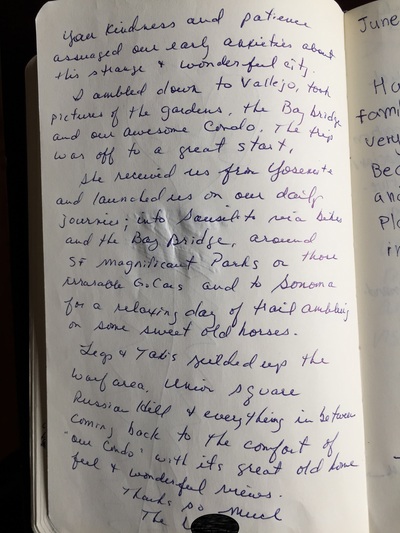 Your kindness and patience
assuaged our early anxieties about
this strange & wonderful city.
I ambled down to Vallejo, took
pictures of the gardens, the Bay bridge
and our awesome Condo. The trip
was off to a great start.
She received us from Yosemite
and launched us on our daily
journies; into Sausalito via bikes
and the Bay Bridge, around
SF magnificant Parks on those
G. Cars and to Sonoma
for a relaxing day of trail ambling
on some sweet old horses.
Legs & Taxis up the
warf area. Union Square
Russian Hill & everything in between
coming back to the comfort of
"our Condo" with its great old home
feel & wonderful views.
Thanks so much
The
June
Ha
fami
very
Bec
and
Pla
in